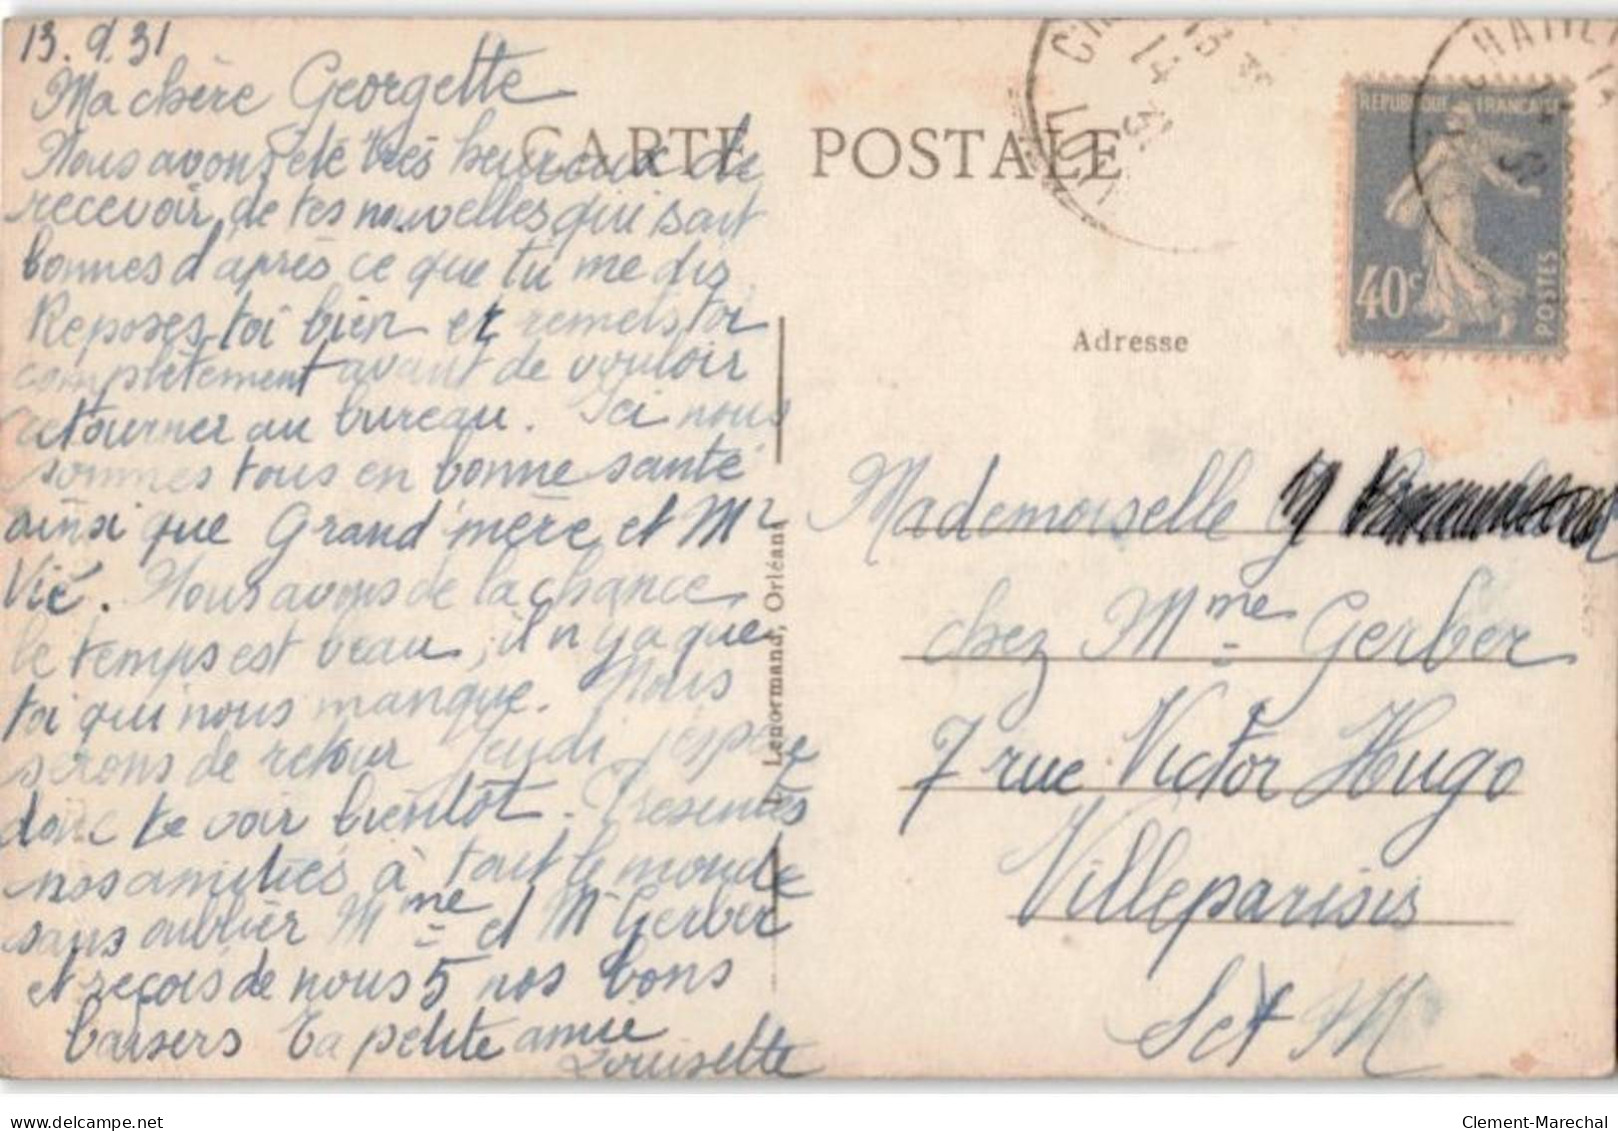 13.9.31
Ma chère Georgette
Nous avons été très heureux de
recevoir de tes nouvelles qui sont
bonnes d'après ce que tu me dis.
Reposes toi bien et remets toi
complètement avant de vouloir
retourner au bureau. Ici nous
sommes tous en bonne santé
ainsi que Grand'mère et Mr
Vié. Nous avons de la chance
le temps est beau, il n'y a que
toi qui nous manque. Nous
serons de retour Jeudi j'espère
donc te voir bientôt. Présentes
nos amitiés à tout le monde
sans oublier Mme et Mr Gerber
et reçois de nous 5 nos bons
baisers ta petite amie
Louisette
CARTE POSTALE
REPUBLIQUE FRANÇAISE
40c
POSTES
Adresse
Lenormand, Orléans
Mademoiselle G
chez Mme Gerber
7 rue Victor Hugo
Villeparisis
S et M
delcampe.net
Clement-Marechal